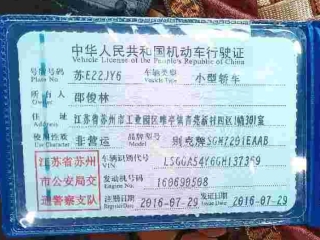 中华人民共和国机动车行驶证
Vehicle License of the People's Republic of China
号牌号码 苏E22JY6 车辆类型 小型轿车
Plate No. Vehicle Type
所有人 邵俊林
Owner
住址 江苏省苏州市工业园区唯亭镇青苑新村四区
Address
使用性质 非营运 品牌型号 别克牌SGM7201EAAB
Use Character Model
江苏省苏州
市公安局交
通警察支队
车辆识别代号
VIN
发动机号码
Engine No.
注册日期 2016-07-29 发证日期 2016-07-29
Register Date Issue Date